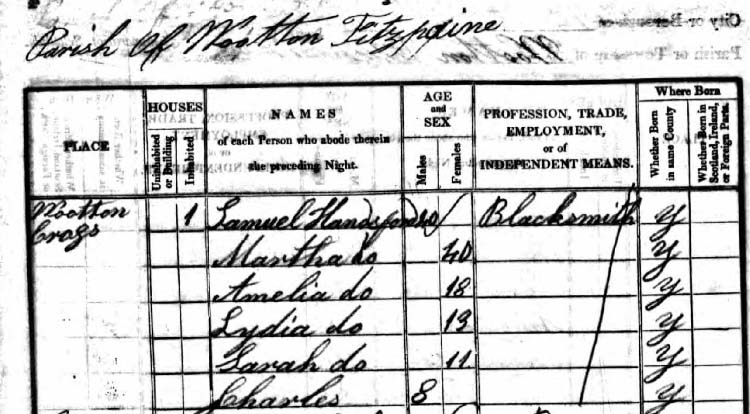 Parish Of Wootton Fitzpaine
City or Borough of
Parish or Township of
PLACE
HOUSES
Uninhabited or Building
Inhabited
NAMES
of each Person who abode therein
the preceding Night.
AGE
and
SEX
Males
Females
PROFESSION, TRADE,
EMPLOYMENT,
or of
INDEPENDENT MEANS.
Where Born
Whether Born in same County
Whether Born in Scotland, Ireland, or Foreign Parts.
Wootton 1 Samuel Handsford 40 Blacksmith y
Crags Martha do 40 y
Amelia do 18 y
Lydia do 13 y
Sarah do 11 y
Charles 8 y